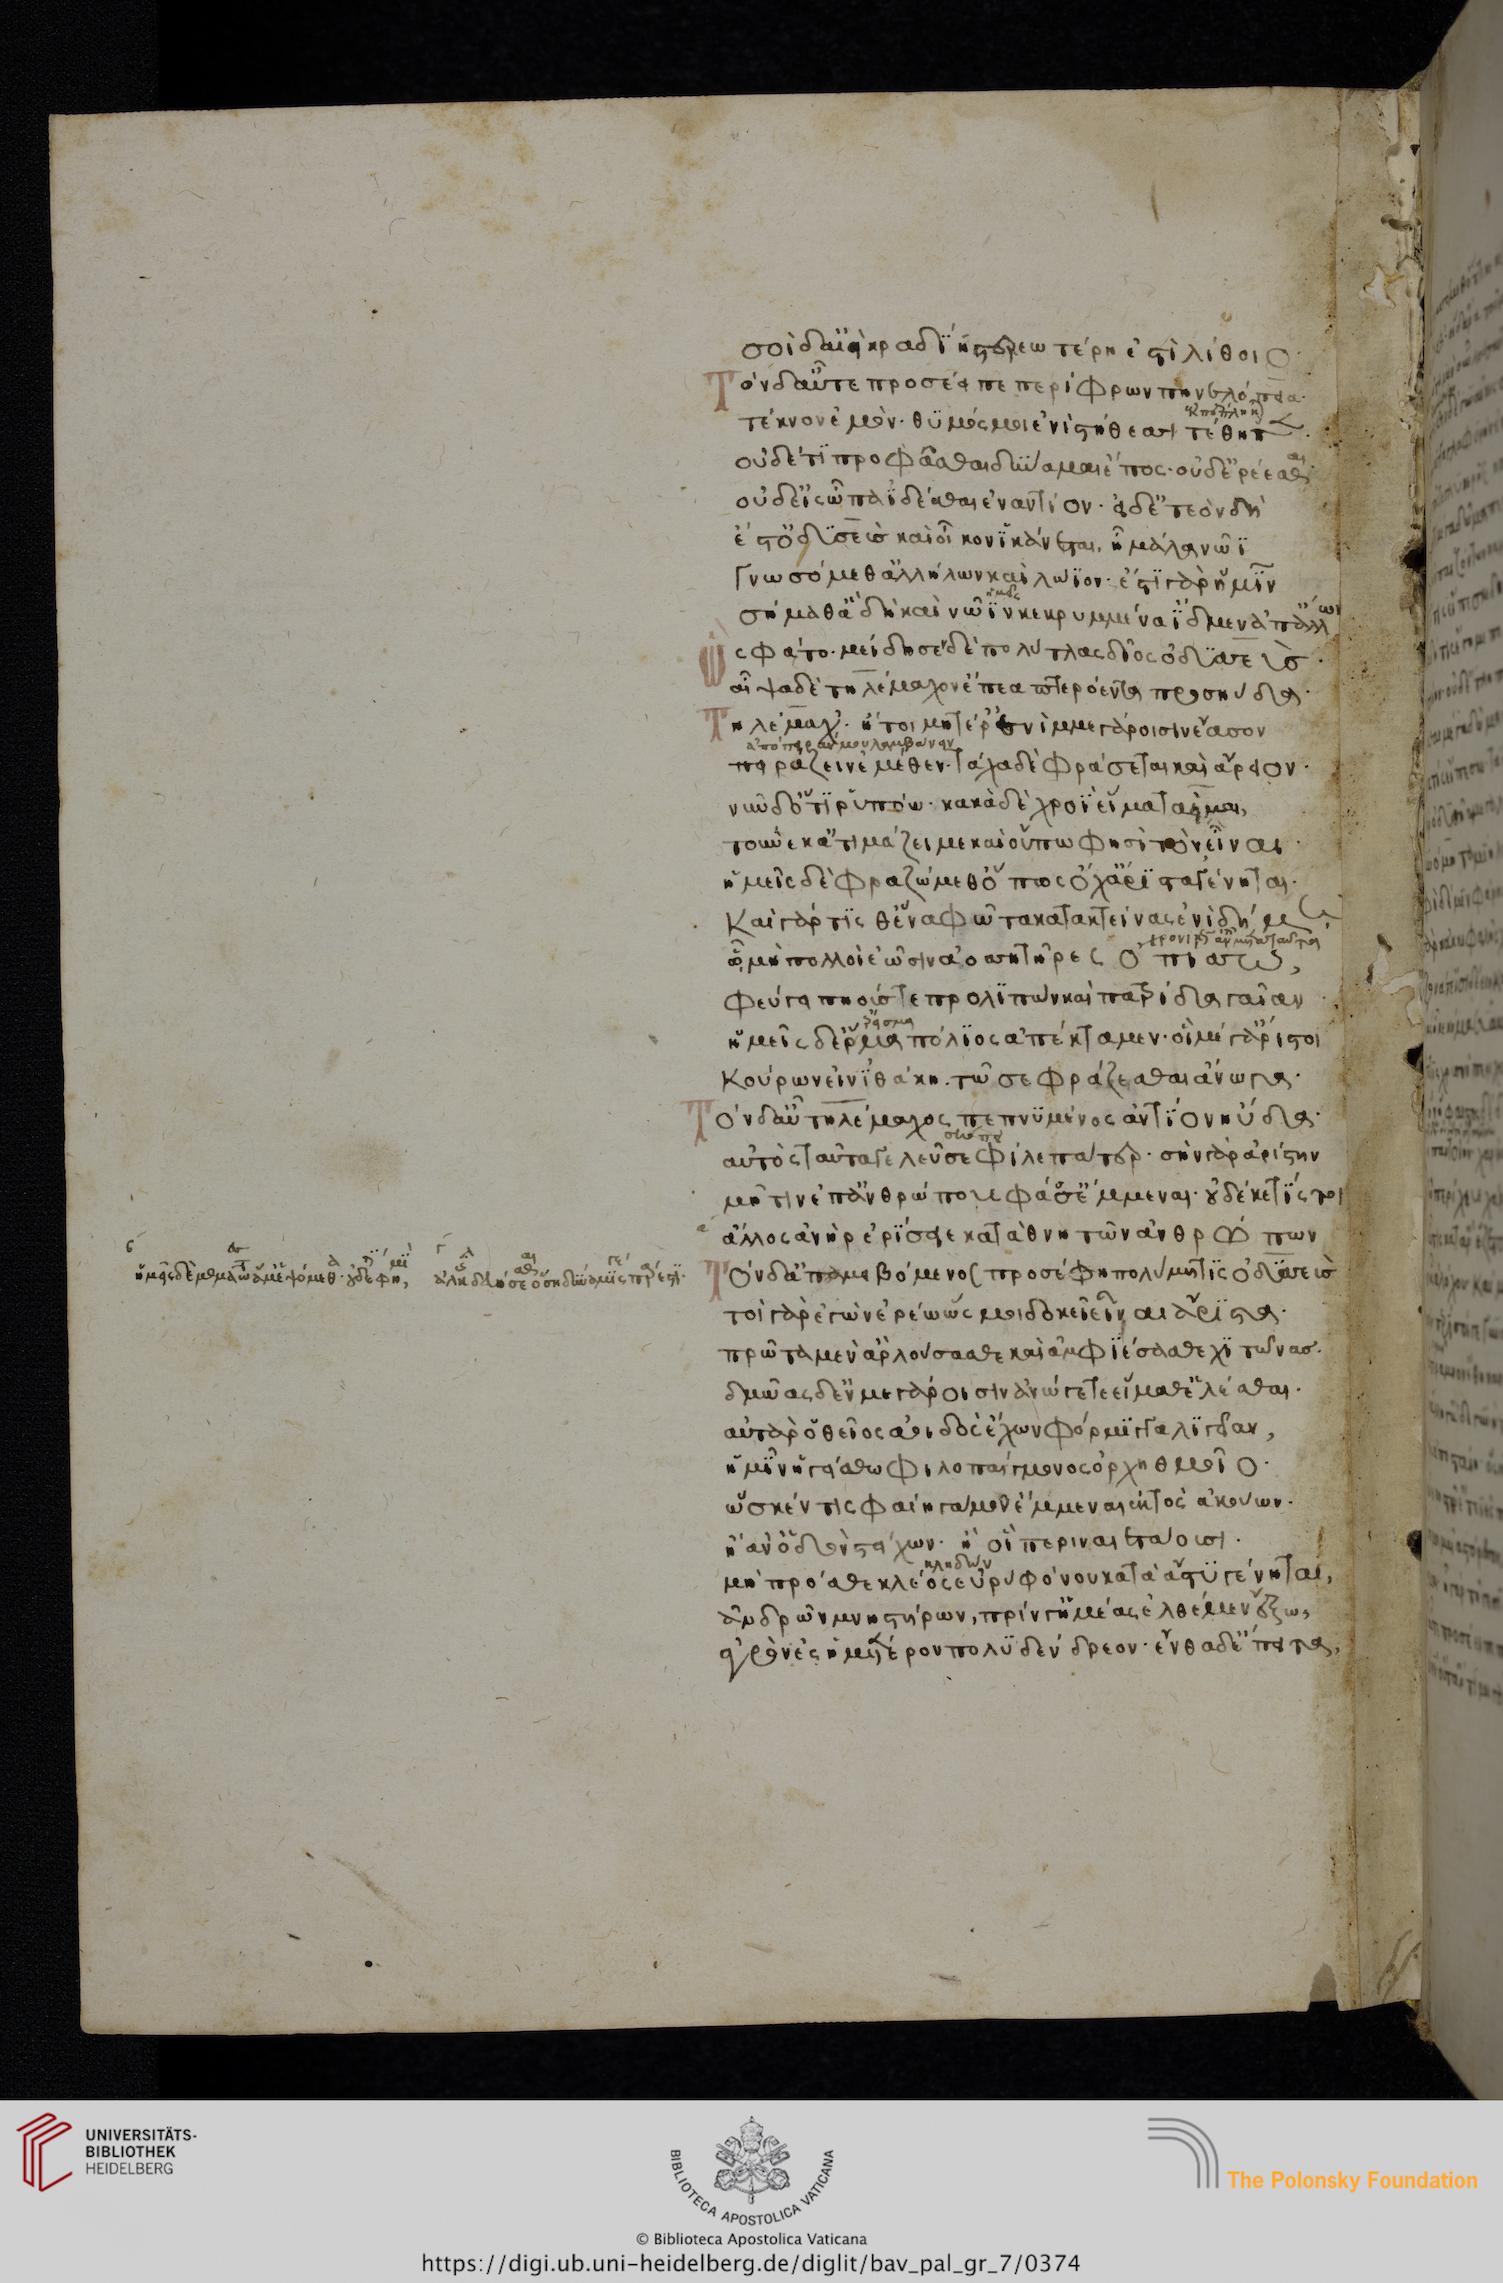 σοὶ δ' αἰεὶ κραδίη στερεωτέρη ἐστὶ λίθοιο·
Τὸν δ' αὖτε προσέειπε περίφρων πηνελόπεια·
τέκνον ἐμόν· θυμός μοι ἐνὶ στήθεσσι τέθηπεν·
οὐδέ τι προσφάσθαι δύναμαι ἔπος· οὐδ' ἐρέεσθαι·
οὐδ' εἰς ὦπα ἰδέσθαι ἐναντίον· εἰ δ' ἐτεὸν δὴ
ἔστ' ὀδυσεὺς καὶ οἶκον ἱκάνεται, ἦ μάλα νῶϊ
γνωσόμεθ' ἀλλήλων καὶ λώϊον· ἔστι γὰρ ἡμῖν
σήμαθ' ἃ δὴ καὶ νῶϊν κεκρυμμένα ἴδμεν ἀπ' ἄλλων
Ὣς φάτο· μείδησεν δὲ πολύτλας δῖος ὀδυσσεύς·
αἶψα δὲ τηλέμαχον ἔπεα πτερόεντα προσηύδα·
Τηλέμαχ'· ἤτοι μητέρ' ἐνὶ μμεγάροισιν ἔασον
πειράζειν ἐμέθεν· τάχα δὲ φράσεται καὶ ἄρειον·
νῦν δ' ὅττι ῥυπόω· κακὰ δὲ χροῒ εἵματα εἷμαι,
τοὔνεκ' ἀτιμάζει με καὶ οὔπω φησὶ τὸν εἶναι·
ἡμεῖς δὲ φραζώμεθ' ὅπως ὄχ' ἄριστα γένηται·
Καὶ γάρ τίς θ' ἕνα φῶτα κατακτείνας ἐνὶ δήμῳ
ᾧ μὴ πολλοὶ ἔωσιν ἀοσσητῆρες ὀπίσσω,
φεύγει πηούς τε προλιπὼν καὶ πατρίδα γαῖαν·
ἡμεῖς δ' ἕρμα πόλιος ἀπέκταμεν· οἳ μέγ' ἄριστοι
Κούρων εἰν ἰθάκῃ· τῶ σε φράζεσθαι ἄνωγα·
Τὸν δ' αὖ τηλέμαχος πεπνυμένος ἀντίον ηὔδα·
αὐτὸς ταῦτά γε λεῦσσε φίλε πάτερ· σὴν γὰρ ἀρίστην
μῆτιν ἐπ' ἀνθρώπους φάσ' ἔμμεναι· οὐδέ κέ τίς τοι
ἄλλος ἀνὴρ ἐρίσειε καταθνητῶν ἀνθρώπων
ἡμεῖς δὲ μεμαῶτες ἅμ' ἑψόμεθ'· οὐδέ τί φημι, ἀλκῆς δευήσεσθαι ὅση δύναμίς γε πάρεστι·
Τὸν δ' ἀπαμειβόμενος προσέφη πολύμητις ὀδυσσεύς
τοὶ γὰρ ἐγὼν ἐρέω ὥς μοι δοκεῖ εἶναι ἄριστα·
πρῶτα μὲν ἂρ λούσασθε καὶ ἀμφιέσασθε χιτῶνας·
δμωὰς δ' ἐν μεγάροισιν ἀνώγετε εἵμαθ' ἑλέσθαι·
αὐτὰρ ὁ θεῖος ἀοιδὸς ἔχων φόρμιγγα λίγειαν,
ἡμῖν ἡγείσθω φιλοπαίγμονος ὀρχηθμοῖο·
ὥς κέν τις φαίη γάμον ἔμμεναι ἐκτὸς ἀκούων·
ἢ ἀν' ὁδὸν στείχων· ἢ οἳ περιναιετάουσι·
μὴ πρόσθε κλέος εὐρὺ φόνου κατὰ ἄστυ γένηται,
ἀνδρῶν μνηστήρων, πρίν γ' ἡμέας ἐλθέμεν ἔξω,
ἀγρὸν ἐς ἡμέτερον πολυδένδρεον· ἔνθα δ' ἔπειτα,
UNIVERSITÄTS-
BIBLIOTHEK
HEIDELBERG
BIBLIOTECA APOSTOLICA VATICANA
The Polonsky Foundation
© Biblioteca Apostolica Vaticana
https://digi.ub.uni-heidelberg.de/diglit/bav_pal_gr_7/0374